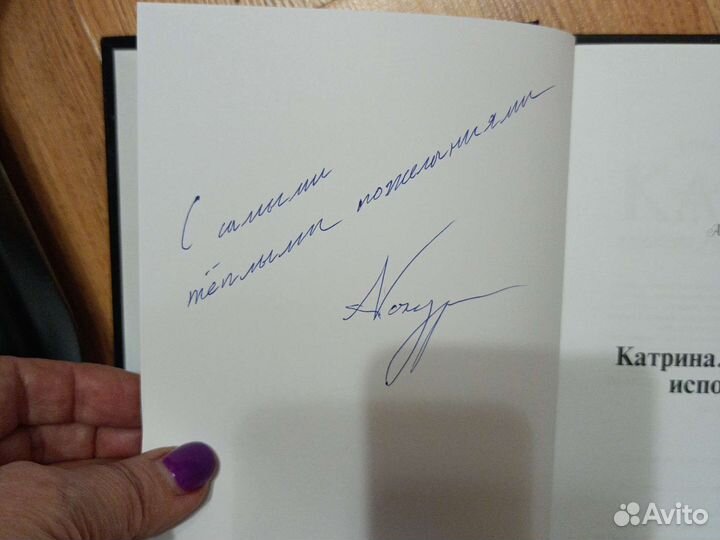 С самыми
тёплыми пожеланиями
Катрина.
испо
Avito